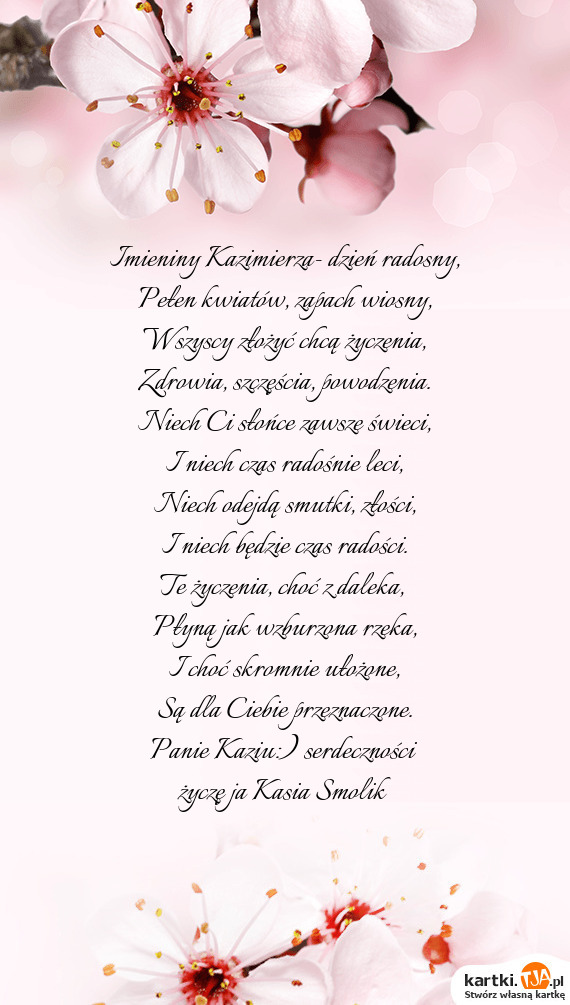 Imieniny Kazimierza- dzień radosny,
Pełen kwiatów, zapach wiosny,
Wszyscy złożyć chcą życzenia,
Zdrowia, szczęścia, powodzenia.
Niech Ci słońce zawsze świeci,
I niech czas radośnie leci,
Niech odejdą smutki, złości,
I niech będzie czas radości.
Te życzenia, choć z daleka,
Płyną jak wzburzona rzeka,
I choć skromnie ułożone,
Są dla Ciebie przeznaczone.
Panie Kaziu:) serdeczności
życzę ja Kasia Smolik
kartki.TJA.pl
Stwórz własną kartkę